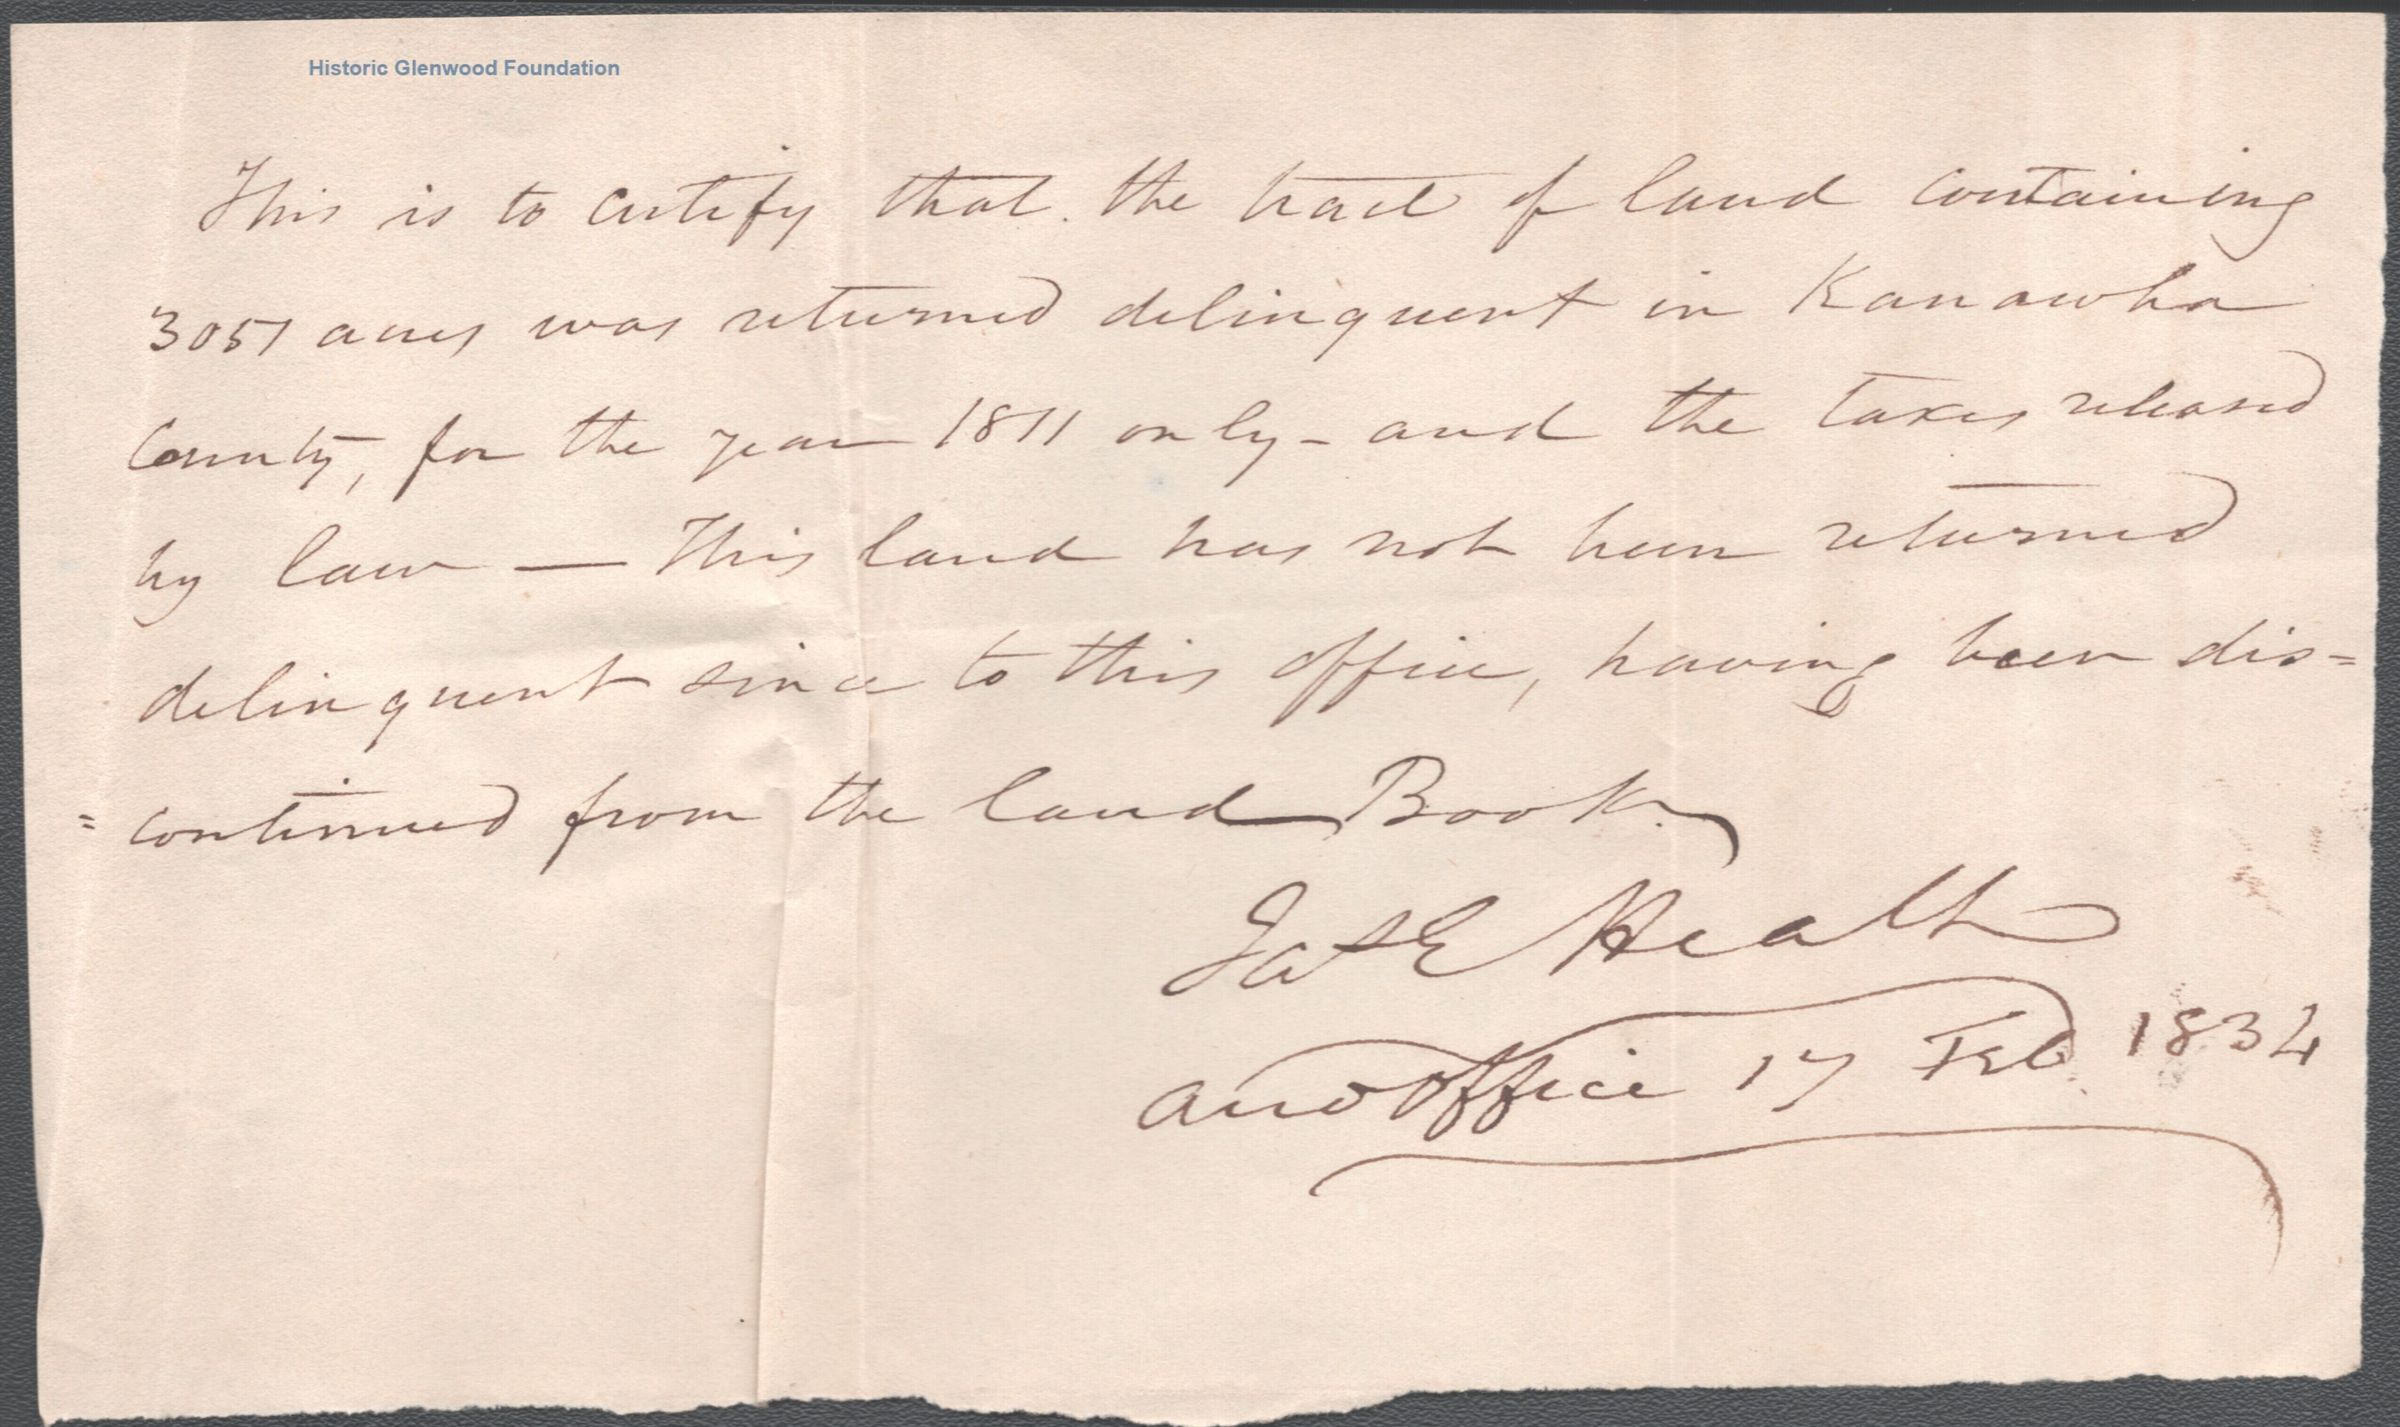 Historic Glenwood Foundation
This is to certify that the tract of land containing
3051 acres was returned delinquent in Kanawha
County, for the year 1811 only - and the taxes released
by law — This land has not been returned
delinquent since to this office, having been dis=
=continued from the land Book
Jas E Heath
Aud Office 17 Feb 1834